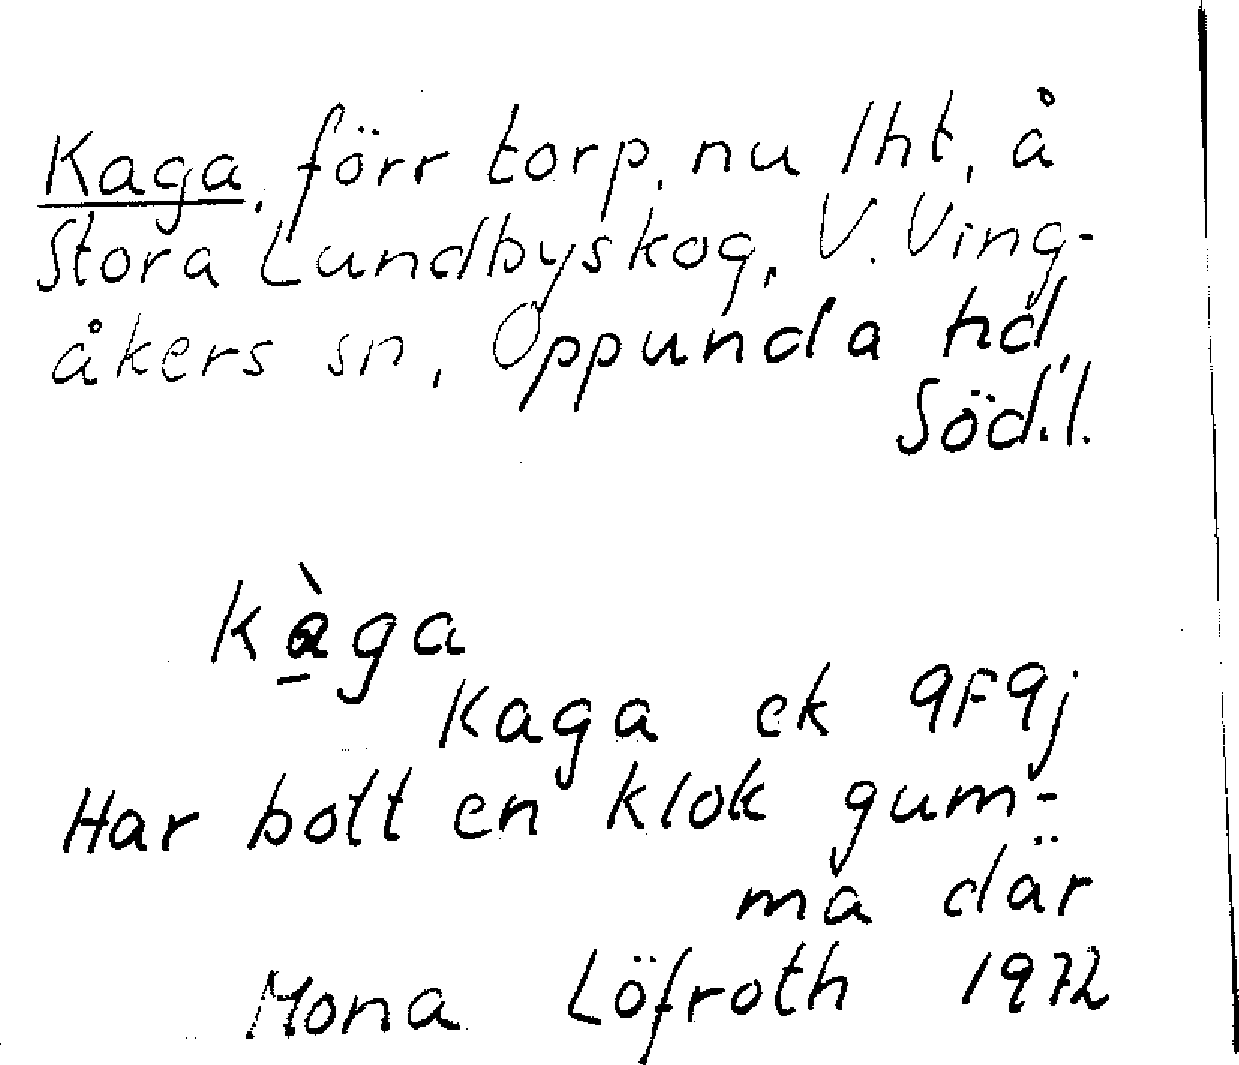 Kaga, förr torp, nu lht, å
Stora Lundbyskog, V. Ving-
åkers sn, Oppunda hd,
Söd.l.
kà̱ga
Kaga ek 9F9j
Har bott en klok gum-
ma där
Mona Löfroth 1972